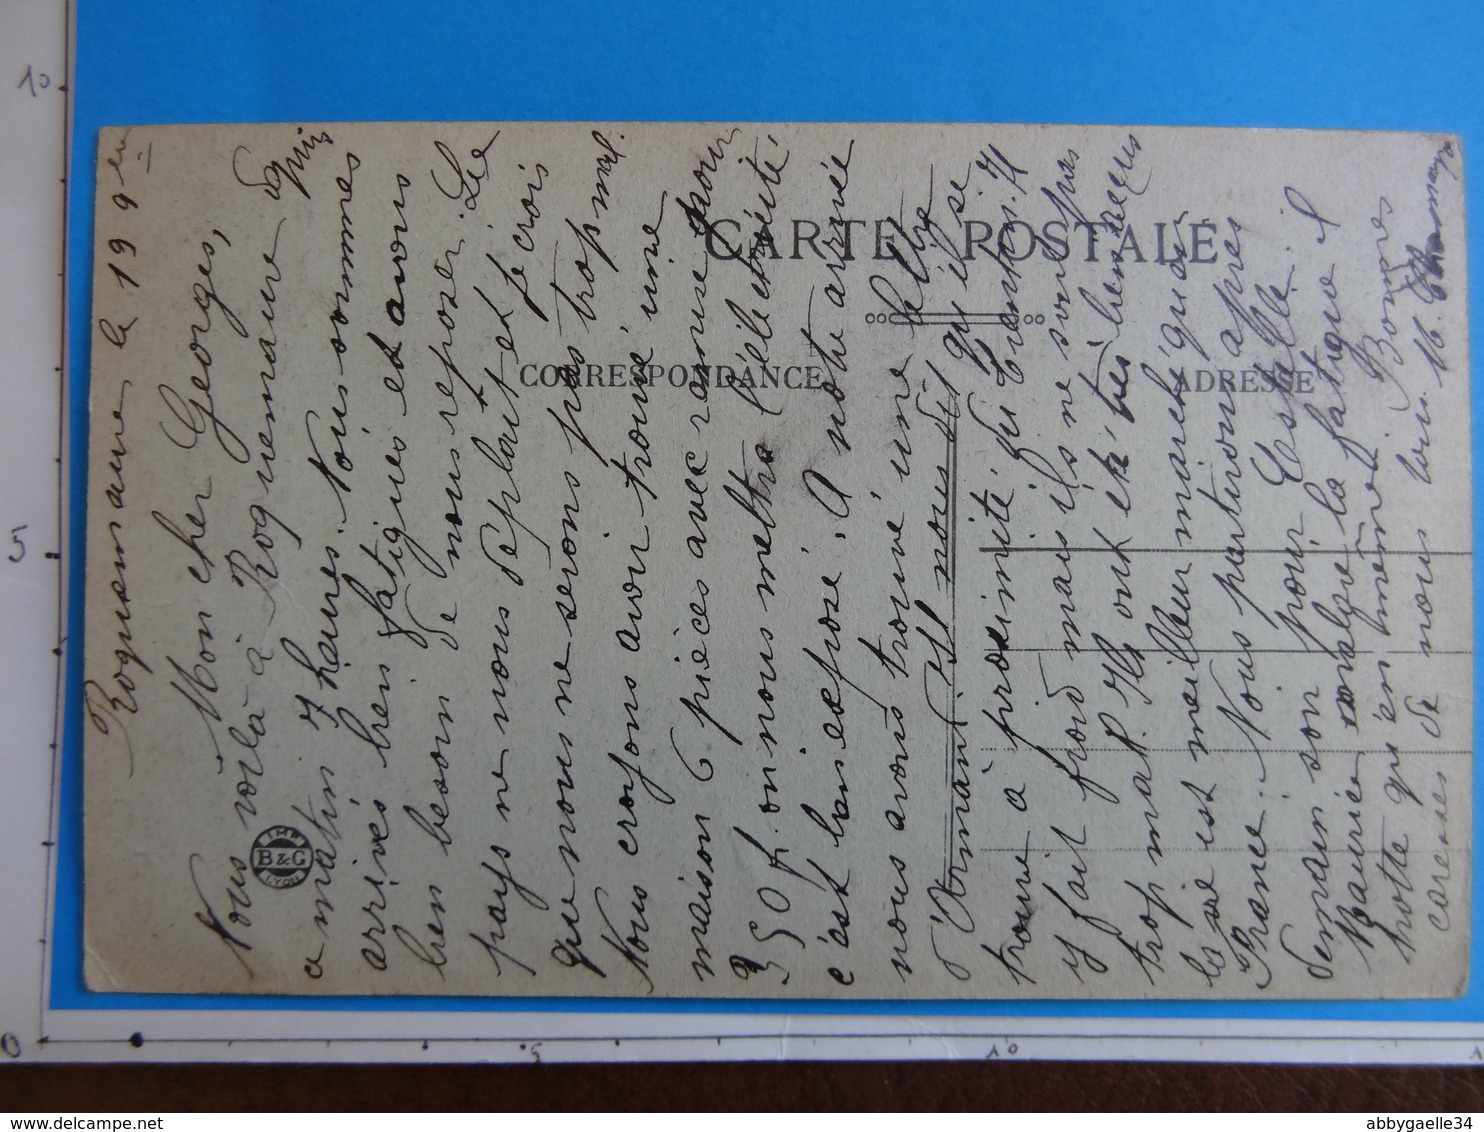 Roquemaure le 19 9
Mon cher Georges,
Nous voilà à Roquemaure depuis
ce matin 7 heures. Nous sommes
arrivés bien fatigués et avons
bien besoin de nous reposer. Le
pays ne nous déplait et je crois
que nous ne serons pas trop mal.
Nous croyons avoir trouvé une
maison 6 pièces avec remise pour
350 f. on nous mettra l'électricité
c'est bien exposé. A notre arrivée
nous avons trouvé une lettre
d'Armand. Il nous dit qu'il se
trouve à proximité du Cantin. Il
y fait froid mais ils ne sont pas
trop mal. Ils ont été très bien reçus
la vie est meilleur marché qu'en
France. Nous partirons après
demain soir pour Estelle.
Maurice malgré la fatigue il
trotte quand même. Bonnes
caresses de nous tous.
CARTE POSTALE
CORRESPONDANCE
ADRESSE
IMP.
B & G
LYON
10
5
0
5
10
1
delcampe.net
abbygaelle34